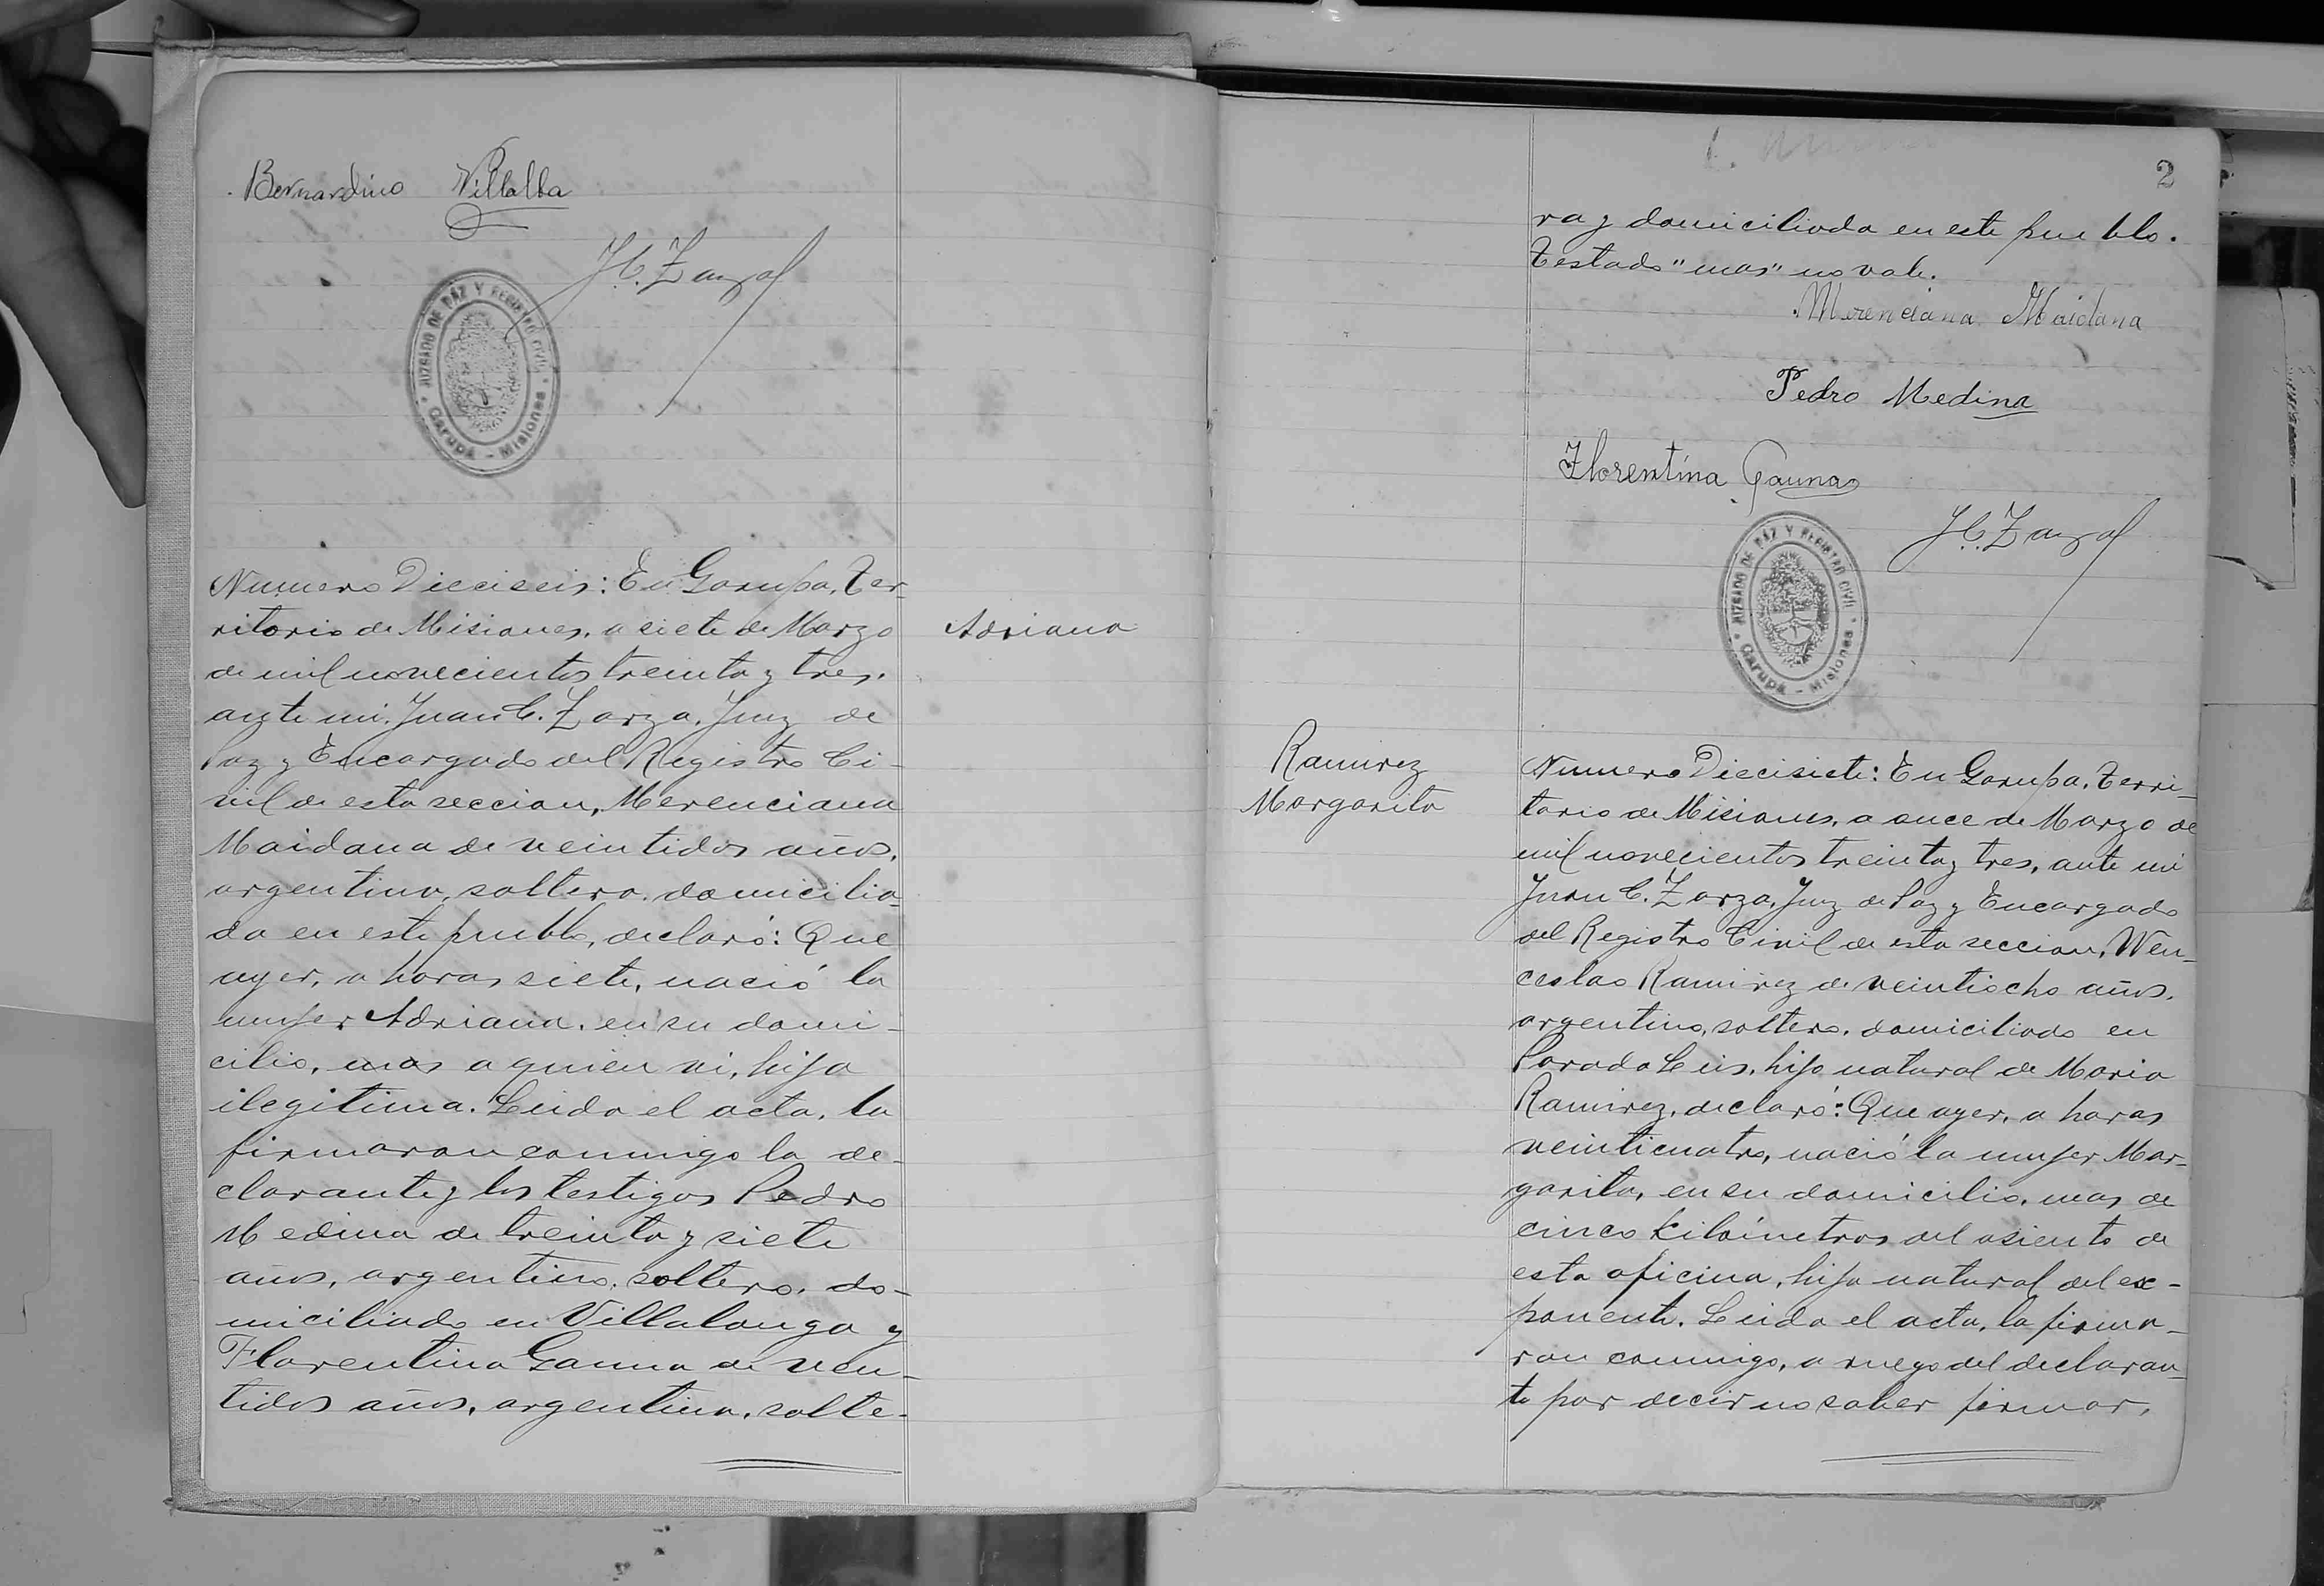 Bernardino Villalba
J.C. Zarza
JUZGADO DE PAZ Y REGISTRO CIVIL
Garupá - Misiones
Numero Dieciseis: En Garupa, Ter-
ritorio de Misiones, a siete de Marzo
de mil novecientos treinta y tres,
ante mi, Juan C. Zarza, Juez de
Paz y Encargado del Registro Ci-
vil de esta seccion, Merenciana
Maidana de veintidos años,
argentina, soltera, domicilia-
da en este pueblo, declaró: Que
ayer, a horas siete, nació la
mujer Adriana, en su domi-
cilio, mas a quien vi, hija
ilegitima. Leida el acta, la
firmaron conmigo la de-
clarante y los testigos Pedro
Medina de treinta y siete
años, argentino, soltero, do-
miciliado en Villalonga y
Florentina Gauna de vein-
tidos años, argentina, solte-
Adriana
2
ra y domiciliada en este pueblo.
Testado "mas" no vale.
Merenciana Maidana
Pedro Medina
Florentina Gauna
J.C. Zarza
JUZGADO DE PAZ Y REGISTRO CIVIL
Garupá - Misiones
Ramirez
Margarita
Numero Diecisiete: En Garupa, Terri-
torio de Misiones, a once de Marzo de
mil novecientos treinta y tres, ante mi
Juan C. Zarza, Juez de Paz y Encargado
del Registro Civil de esta seccion, Wen-
ceslao Ramirez de veintiocho años,
argentino, soltero, domiciliado en
Parada Leis, hijo natural de Maria
Ramirez, declaró: Que ayer, a horas
veinticuatro, nació la mujer Mar-
garita, en su domicilio, mas de
cinco kilómetros del asiento de
esta oficina, hija natural del ex-
ponente. Leida el acta, la firma-
ron conmigo, a ruego del declaran-
te por decir no saber firmar,